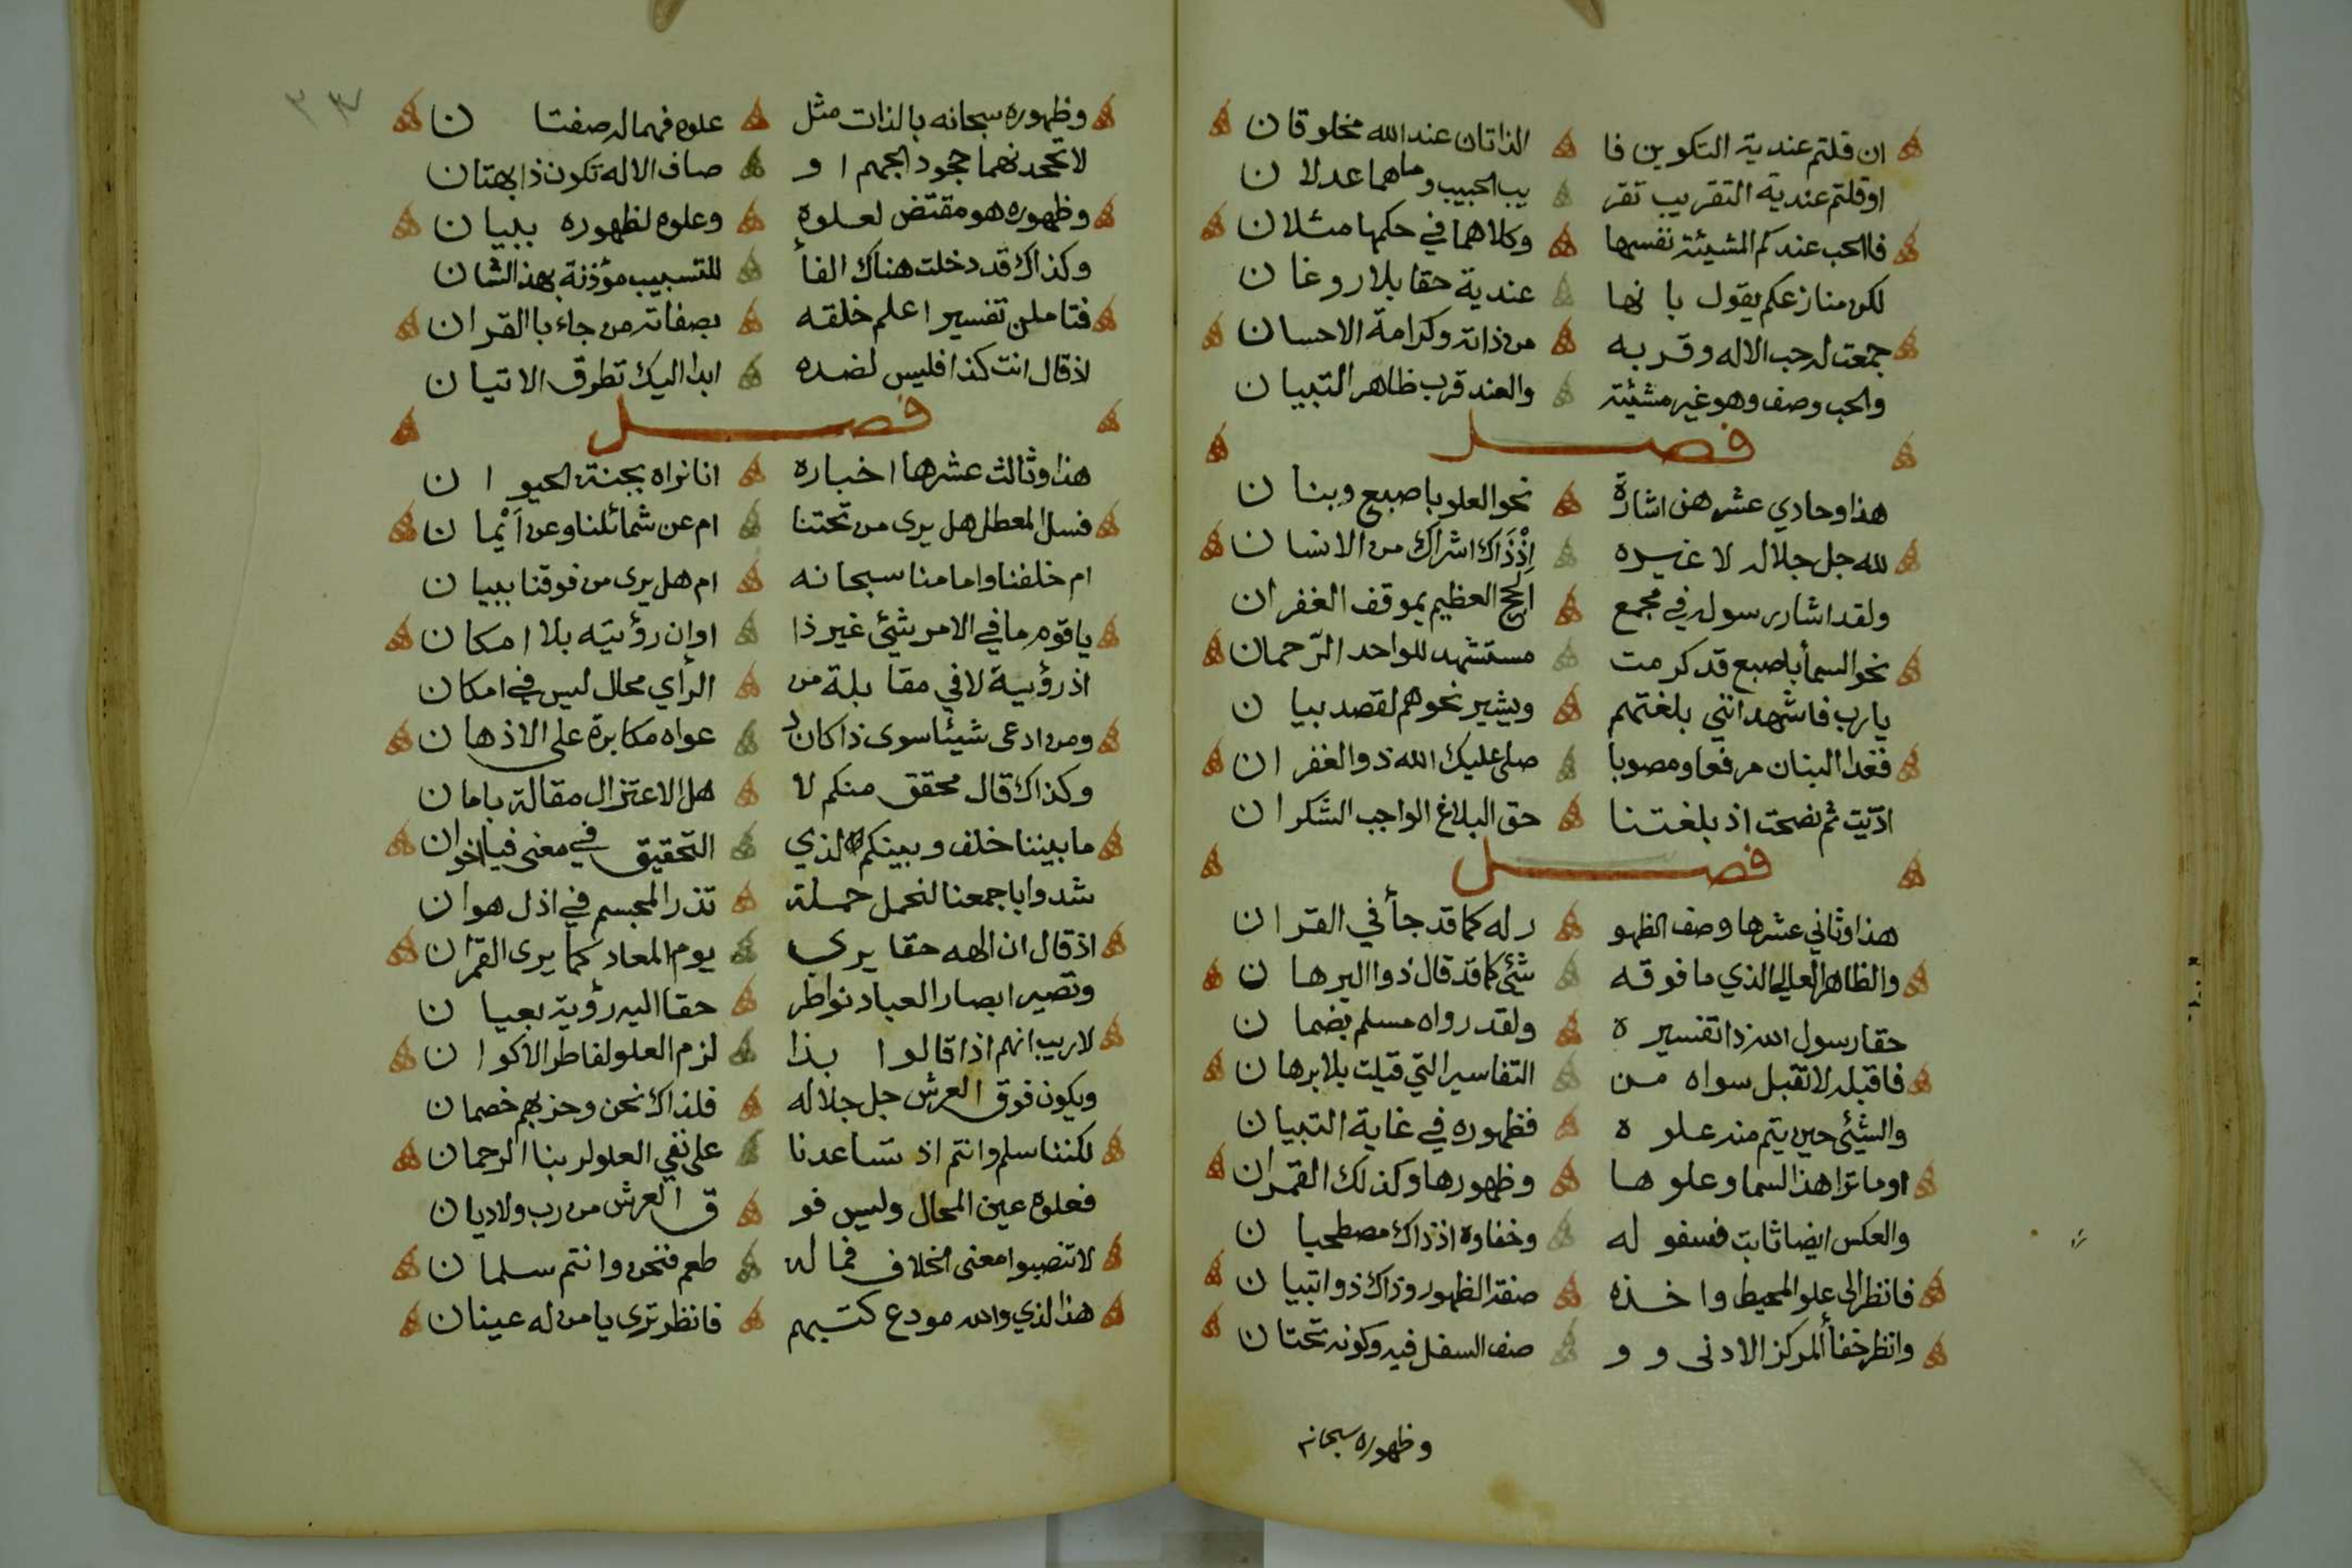 ان قلتم عندية التكوين فا الذاتان عند الله مخلوقان
او قلتم عندية التقريب تقر يب الحبيب وماهما عدلان
فالحب عندكم المشيئة نفسها وكلاهما في حكمها مثلان
لكن منازعكم يقول بانها عندية حقا بلا روغان
جمعت له حب الاله وقربه من ذاته وكرامة الاحسان
والحب وصف وهو غير مشيئة والعند قرب ظاهر التبيان
فصل
هذا وحادي عشرهن اشارة نحو العلو باصبع وبنان
لله جل جلاله لا غيره إذْذَاك اشراك من الانسان
ولقد اشار رسوله في مجمع الحج العظيم بموقف الغفران
نحو السمأ باصبع قد كرمت مستشهد للواحد الرّحمان
يارب فاشهد انني بلغتهم ويشير نحوهم لقصد بيان
فغدا البنان مرفعا ومصوبا صلى عليك الله ذو الغفران
ادّيت ثم نصحت اذ بلغتنا حق البلاغ الواجب الشكران
فصل
هذا وثاني عشرها وصف الظهو ر له كما قد جأ في القران
والظاهر العالي الذي ما فوقه شئ كما قد قال ذوا البرهان
حقا رسول الله ذا تفسيره ولقد رواه مسلم بضمان
فاقبله لا تقبل سواه من التفاسير التي قيلت بلا برهان
والشئ حين يتم منه علوه فظهوره في غاية التبيان
اوما ترا هذا السما وعلوها وظهورها وكذلك القمران
والعكس ايضا ثابت فسفوله وخفاوه اذذاك مصطحبان
فانظر الى علو المحيط واخذه صفة الظهور وذاك ذو اتبيان
وانظر خفأ المركز الادنى وو صف السفل فيه وكونه تحتان
وظهوره سبحانه
٣٣
وظهوره سبحانه بالذات مثل علوه فهما له صفتان
لا تجحدنهما جحود الجهم او صاف الاله تكون ذا بهتان
وظهوره هو مقتض لعلوه وعلوه لظهوره ببيان
وكذاك قد دخلت هناك الفأ للتسبيب مؤذنة بهذ الشان
فتاملن تفسير اعلم خلقه بصفاته من جاء با القران
اذ قال انت كذا فليس لضده ابدا اليك تطرق الاتيان
فصل
هذا وثالث عشرها اخباره انا نراه بجنة الحيوان
فسل المعطل هل يرى من تحتنا ام عن شمائلنا وعن اَيْمان
ام خلفنا وامامنا سبحانه ام هل يرى من فوقنا ببيان
ياقوم ما في الامر شئ غير ذا اوان رؤيته بلا امكان
اذ رؤية لا في مقابلة من الرأي محال ليس في امكان
ومن ادعى شيئا سوى ذا كان د عواه مكابرة على الاذهان
وكذاك قال محقق منكم لا هل الاعتزال مقالة بامان
ما بيننا خلف وبينكم لذي التحقيق في معنى فيا اخوان
شدوا باجمعنا لنحمل حملة تذر المجسم في اذل هوان
اذ قال ان الهه حقا يرى يوم المعاد كما يرى القمران
وتصير ابصار العباد نواطر حقا اليه رؤية بعيان
لاريب انهم اذا قالوا بذا لزم العلو لفاطر الاكوان
ويكون فوق العرش جل جلاله فلذاك نحن وحزبهم خصمان
لكننا سلم وانتم اذ تساعدنا على نفي العلو لربنا الرحمان
فعلوه عين المحال وليس فو ق العرش من رب ولاديان
لا تنصبوا معنى الخلاف فما له طعم فنحن وانتم سلمان
هذ الذي والله مودع كتبهم فانظر ترى يا من له عينان